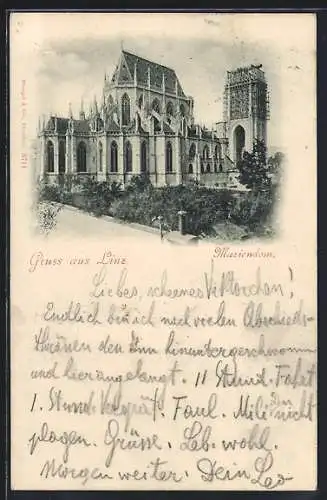 Gruss aus Linz
Mariendom.
Liebes, scheenes Viktorchen!
Endlich bin ich nach vielen Abschieds-
thränen den Inn hinuntergeschwommen
und hier angelangt. 11 Stund. Fahrt
1. Stund. Verspät. Faul. Mili den nicht
plagen. Grüsse. Leb. wohl.
Morgen weiter. Dein Leo